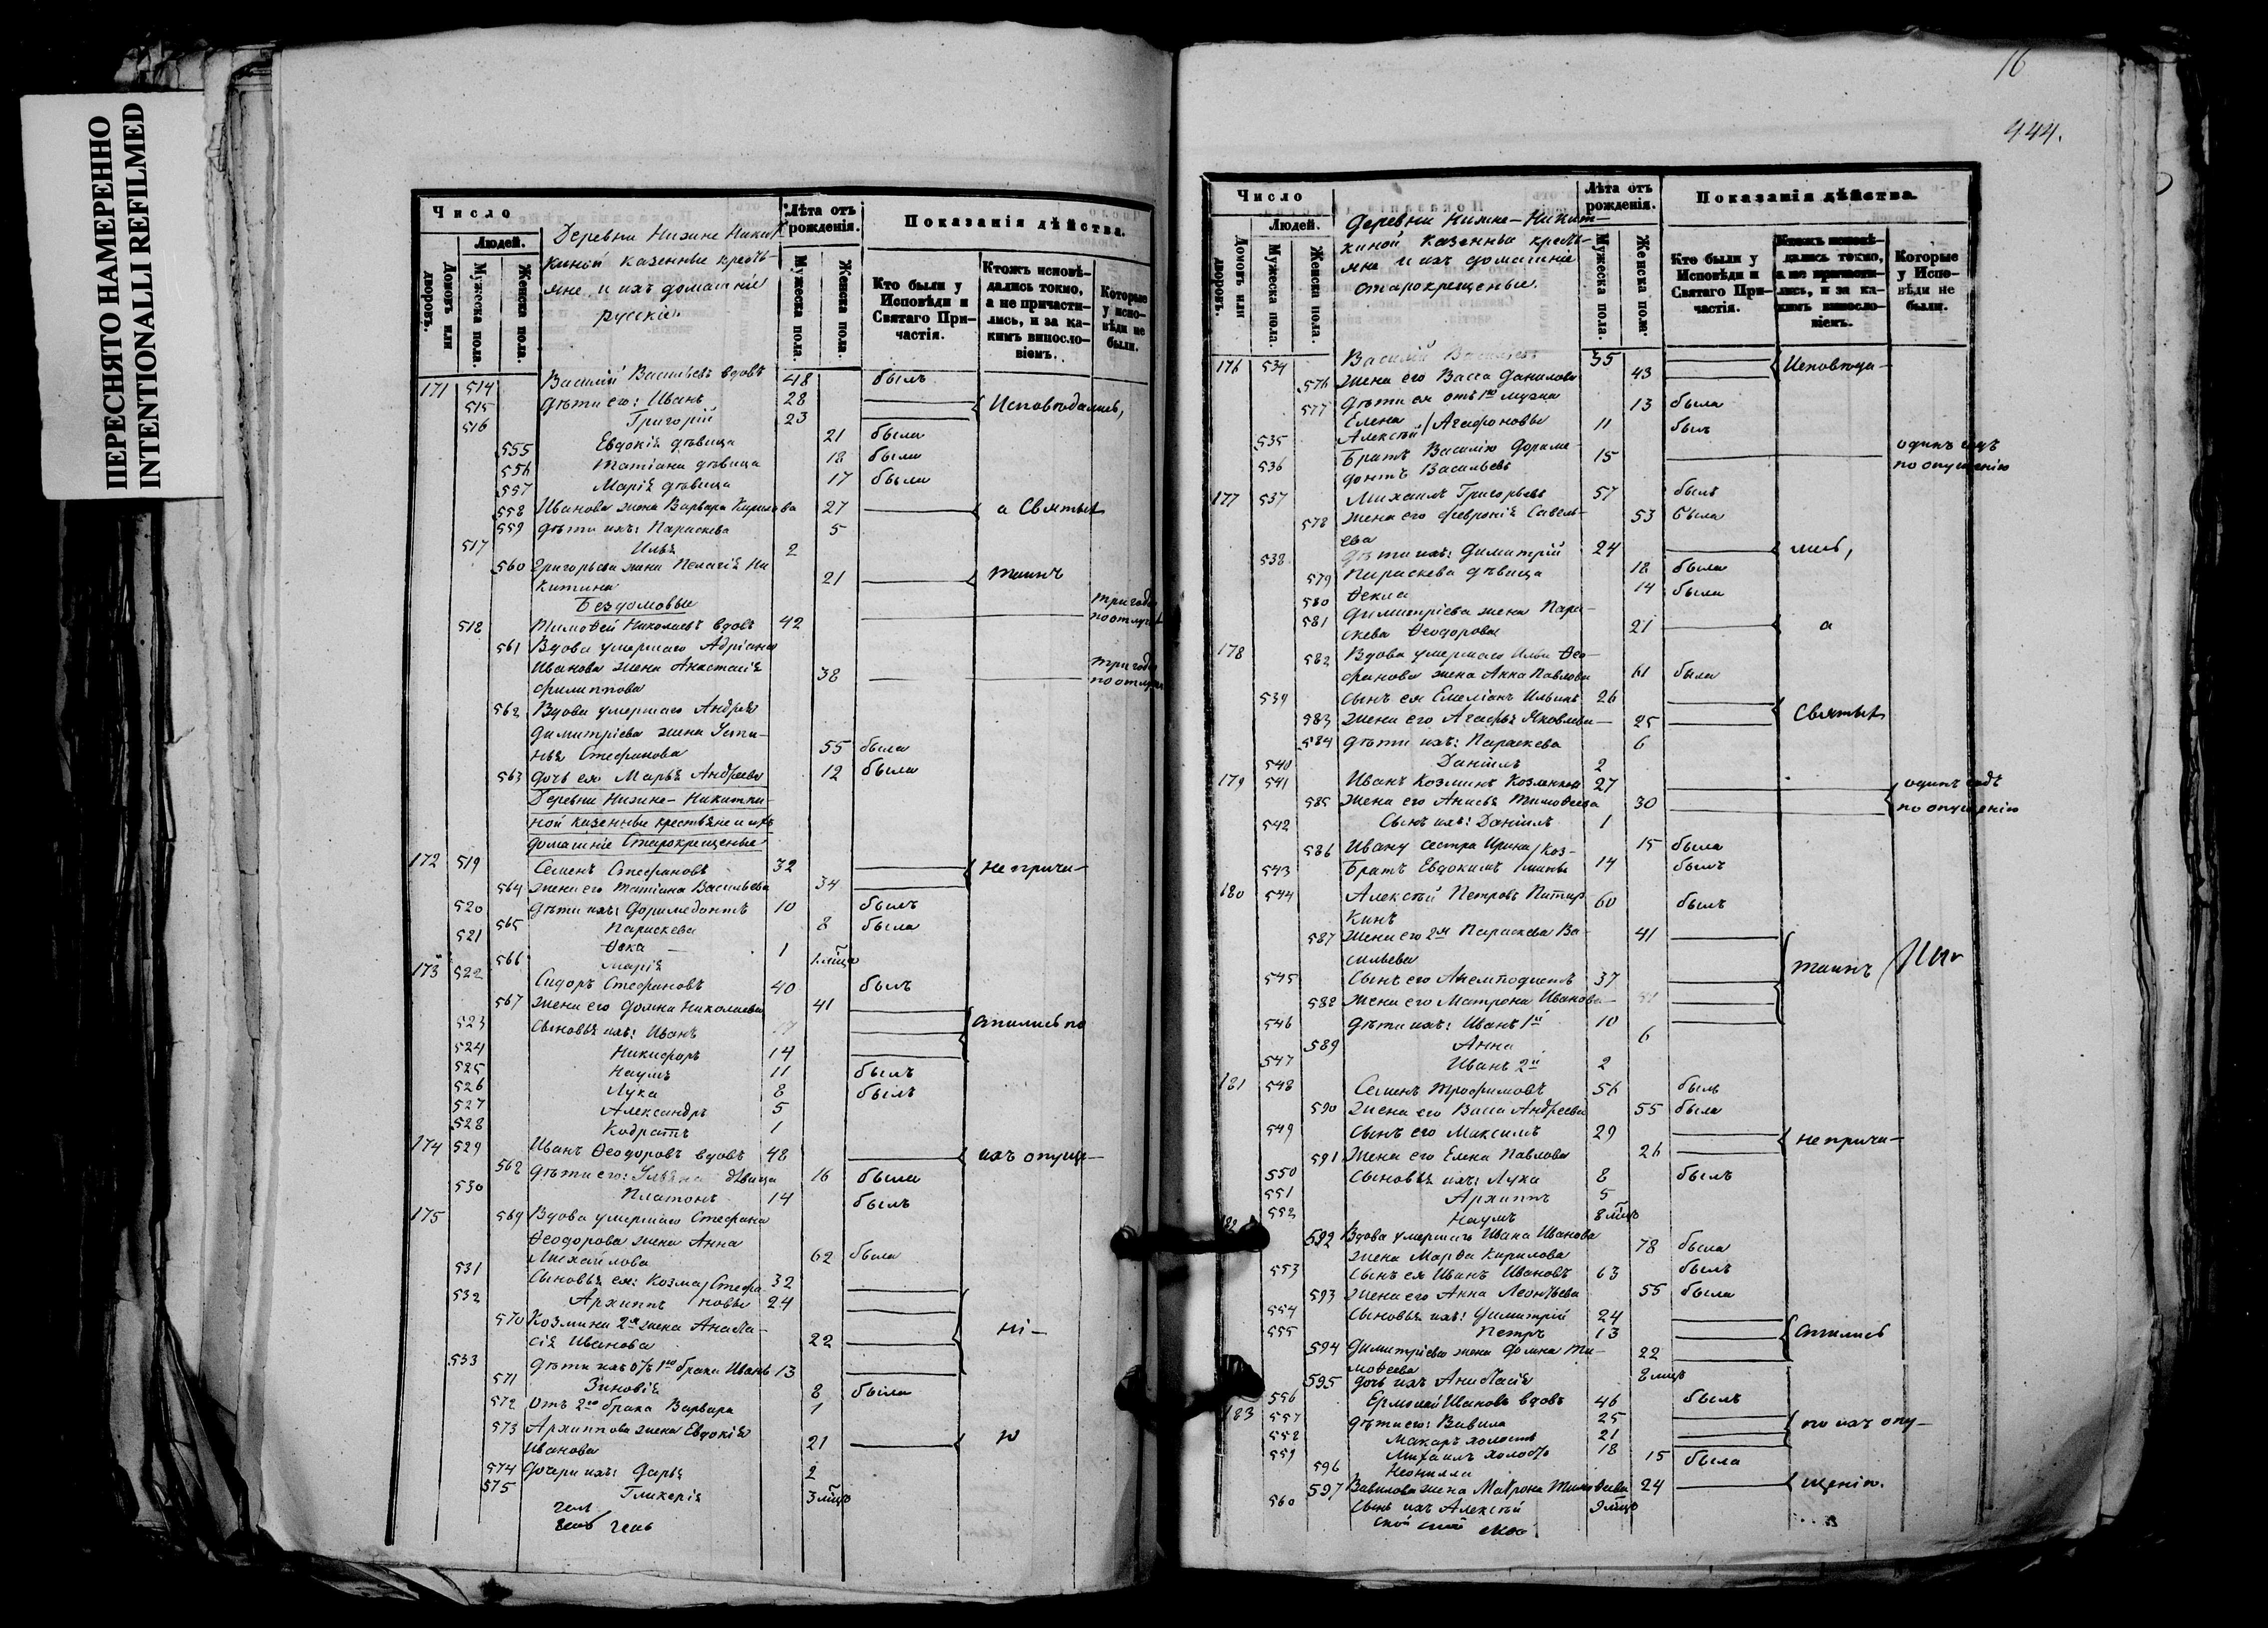 ПЕРЕСНЯТО НАМЕРЕННО
INTENTIONALLI REFILMED
Число
Людей.
Домовъ или дворовъ.
Мужеска пола.
Женска пола.
Деревни Нижне Никит-
киной казенные кресть-
яне и ихъ домашніе
русскіе.
Лѣта отъ рожденія.
Мужеска пола.
Женска пола.
Показанія дѣйства.
Кто были у Исповѣди и Святаго Причастія.
Ктожъ исповѣдались токмо, а не причастились, и за какимъ винословіемъ.
Которые у исповѣди не были.
171 514 Василій Васильевъ вдовъ 48 былъ
515 дѣти его: Иванъ 28 Исповѣдались,
516 Григорій 23
555 Евдокія дѣвица 21 была
556 Татіана дѣвица 18 была
557 Марія дѣвица 17 была
558 Иванова жена Варвара Кирилова 27 а Святыхъ
559 дѣти ихъ: Параскева 5
517 Илья 2
560 Григорьева жена Пелагія Ни-
китина 21 Таинъ
Бездомовые
518 Тимоѳей Николаевъ вдовъ 42 три года по отлучкѣ
561 Вдова умершаго Адріана
Иванова жена Анастасія
Филиппова 38 три года по отлучкѣ
562 Вдова умершаго Андрея
Димитріева жена Усти-
нья Стефанова 55 была
563 дочь ея Марья Андреева 12 была
Деревни Нижне-Никитки-
ной казенные крестьяне и ихъ
домашніе Старокрещеные
172 519 Семенъ Стефановъ 32 не прича-
564 жена его Татіана Васильева 34
520 дѣти ихъ: Доримедонтъ 10 былъ
565 Параскева 8 была
521 Ѳока 1
566 Марія 1 мѣсяца
173 522 Сидоръ Стефановъ 40 былъ
567 жена его Домна Николаева 41
523 сыновья ихъ: Иванъ стились по
524 Никифоръ 14
525 Наумъ 11 былъ
526 Лука 8 былъ
527 Александръ 5
528 Кодратъ 1
174 529 Иванъ Ѳеодоровъ вдовъ 48 ихъ опуще-
568 дѣти его: Ульяна дѣвица 16 была
530 Платонъ 14 былъ
175 569 Вдова умершаго Стефана
Ѳеодорова жена Анна
Михайлова 62 была
531 Сыновья ея: Козма/Стефа- 32
532 Архиппъ новы 24
570 Козмина 2я жена Анаста-
сія Иванова 22 ні-
533 Дѣти ихъ отъ 1го брака Иванъ 13
571 Зиновія 8 была
572 Отъ 2го брака Варвара 1
573 Архиппова жена Евдокія
Иванова 21 ю
574 дочери ихъ: Дарья 2
575 Гликерія 3 мѣсц
16
444.
Число
Людей.
Домовъ или дворовъ.
Мужеска пола.
Женска пола.
Деревни Нижне-Никит-
киной казенные кресть-
яне и ихъ домашніе
старокрещеные.
Лѣта отъ рожденія.
Мужеска пола.
Женска пола.
Показанія дѣйства.
Кто были у Исповѣди и Святаго Причастія.
Ктожъ исповѣдались токмо, а не причастились, и за какимъ винословіемъ.
Которые у Исповѣди не были.
176 534 Василій Васильевъ 35 Исповѣда-
576 жена его Васса Данилова 43
577 Дѣти ея отъ 1го мужа
Елена 13 была
535 Алексѣй/Агафоновы 11 былъ
536 Братъ Василію Дориме-
донтъ Васильевъ 15 одинъ годъ по опущенію
177 537 Михаилъ Григорьевъ 57 былъ
578 жена его Февронія Савель-
ева 53 была
538 дѣти ихъ: Димитрій 24 лись,
579 Параскева дѣвица 18 была
580 Ѳекла 14 была
581 Димитріева жена Пара-
скева Ѳеодорова 21 а
178 582 Вдова умершаго Ильи Ѳео-
фанова жена Анна Павлова 61 была
539 сынъ ея Емеліанъ Ильинъ 26
583 жена его Агафья Яковлева 25 Святыхъ
584 дѣти ихъ: Параскева 6
540 Даніилъ 2
179 541 Иванъ Козминъ 27 одинъ годъ
585 жена его Анисья Тимоѳеева 30 по опущенію
542 Сынъ ихъ: Даніилъ 1
586 Ивану сестра Ирина/Коз- 15 была
543 Братъ Евдокимъ/мины 14 былъ
180 544 Алексѣй Петровъ Питир-
кинъ 60 былъ
587 жена его 2я Параскева Ва-
сильева 41
545 Сынъ его Анемподистъ 37 Таинъ
588 жена его Матрона Иванова
546 дѣти ихъ: Иванъ 1й 10
589 Анна 6
547 Иванъ 2й 2
181 548 Семенъ Трофимовъ 56 былъ
590 жена его Васса Андреева 55 была
549 сынъ его Максимъ 29 не прича-
591 жена его Елена Павлова 26
550 Сыновья ихъ: Лука 8 былъ
551 Архиппъ 5
552 Наумъ 8 мѣсц
182 592 Вдова умершаго Ивана Иванова
жена Марѳа Кирилова 78 была
553 сынъ ея Иванъ Ивановъ 63 былъ
593 жена его Анна Леонтьева 55 была
554 сыновья ихъ: Димитрій 24
555 Петръ 13 стились
594 Димитріева жена Домна Ти-
моѳеева 22
595 дочь ихъ Анастасія 8 мѣсц
183 556 Ермолай Ивановъ вдовъ 46 былъ
557 дѣти его: Вавила 25 по ихъ опу-
558 Макаръ холостъ 21
559 Михаилъ холостъ 18
596 Неонилла 15 была
597 Вавилова жена Матрона Тимоѳеева 24 щенію.
560 сынъ ихъ Алексѣй 9 мѣсц